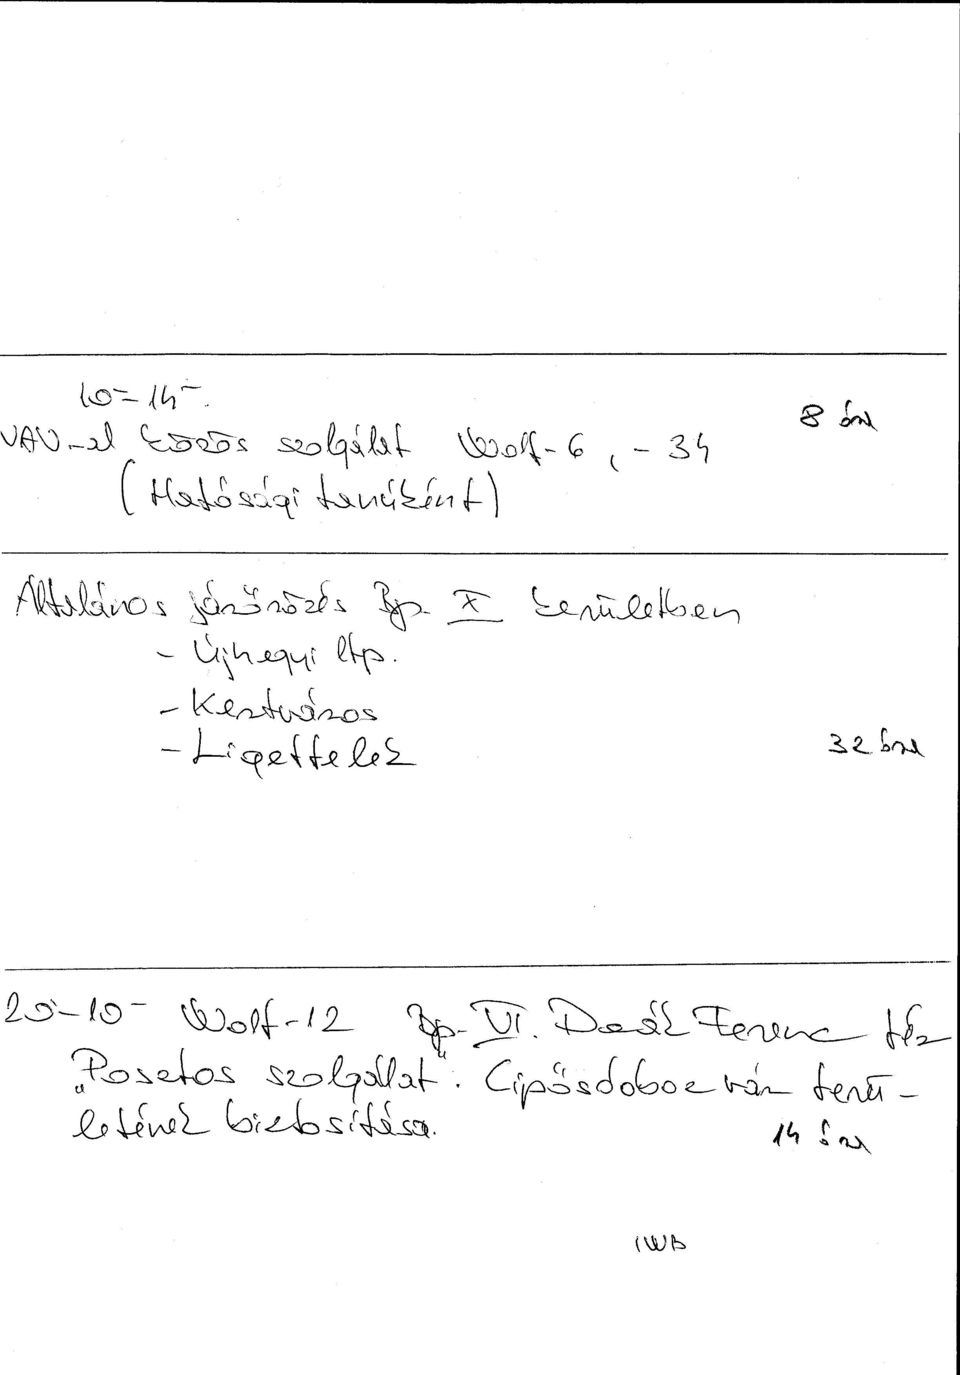 10=14-.
8 óra
VAV-al közös szolgálat Wolf-6, -34
(Hatósági tanúként)
Általános járőrözés Bp. X kerületben
- Újhegyi ltp.
- Kertváros
- Ligettelek
32 óra
20-10- Wolf-12 Bp. VI. Deák Ferenc tér
"Posztos szolgálat". Cipősdoboz vár terü-
letének biztosítása.
14 óra